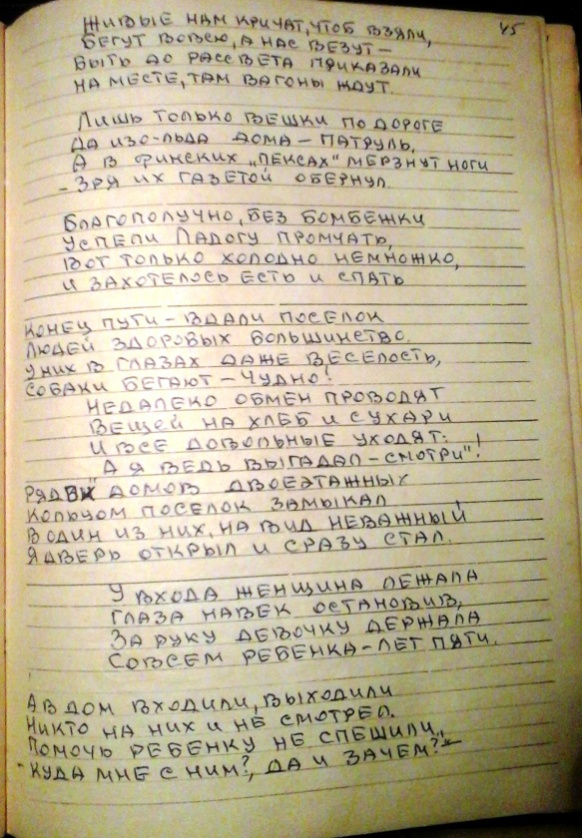 45
Живые нам кричат, чтоб взяли,
Бегут вовсю, а нас везут –
Быть до рассвета приказали
На месте, там вагоны ждут.
Лишь только вешки по дороге
Да изо-льда дома – патруль,
А в финских „пексах" мёрзнут ноги
– Зря их газетой обернул.
Благополучно, без бомбежки
Успели Ладогу промчать,
Вот только холодно немножко,
И захотелось есть и спать
Конец пути – вдали поселок
Людей здоровых большинство.
У них в глазах даже веселость,
Собаки бегают – чудно!
Недалеко обмен проводят
Вещей на хлеб и сухари
И все довольные уходят:
„А я ведь выгадал – смотри"!
Ряды домов двоеэтажных
Кольцом поселок замыкал
В один из них, на вид неважный
Я дверь открыл и сразу стал.
У входа женщина лежала
Глаза навек остановив,
За руку девочку держала
Совсем ребенка – лет пяти.
А в дом входили, выходили
Никто на них и не смотрел.
Помочь ребенку не спешили,
"Куда мне с ним?, да и зачем?"